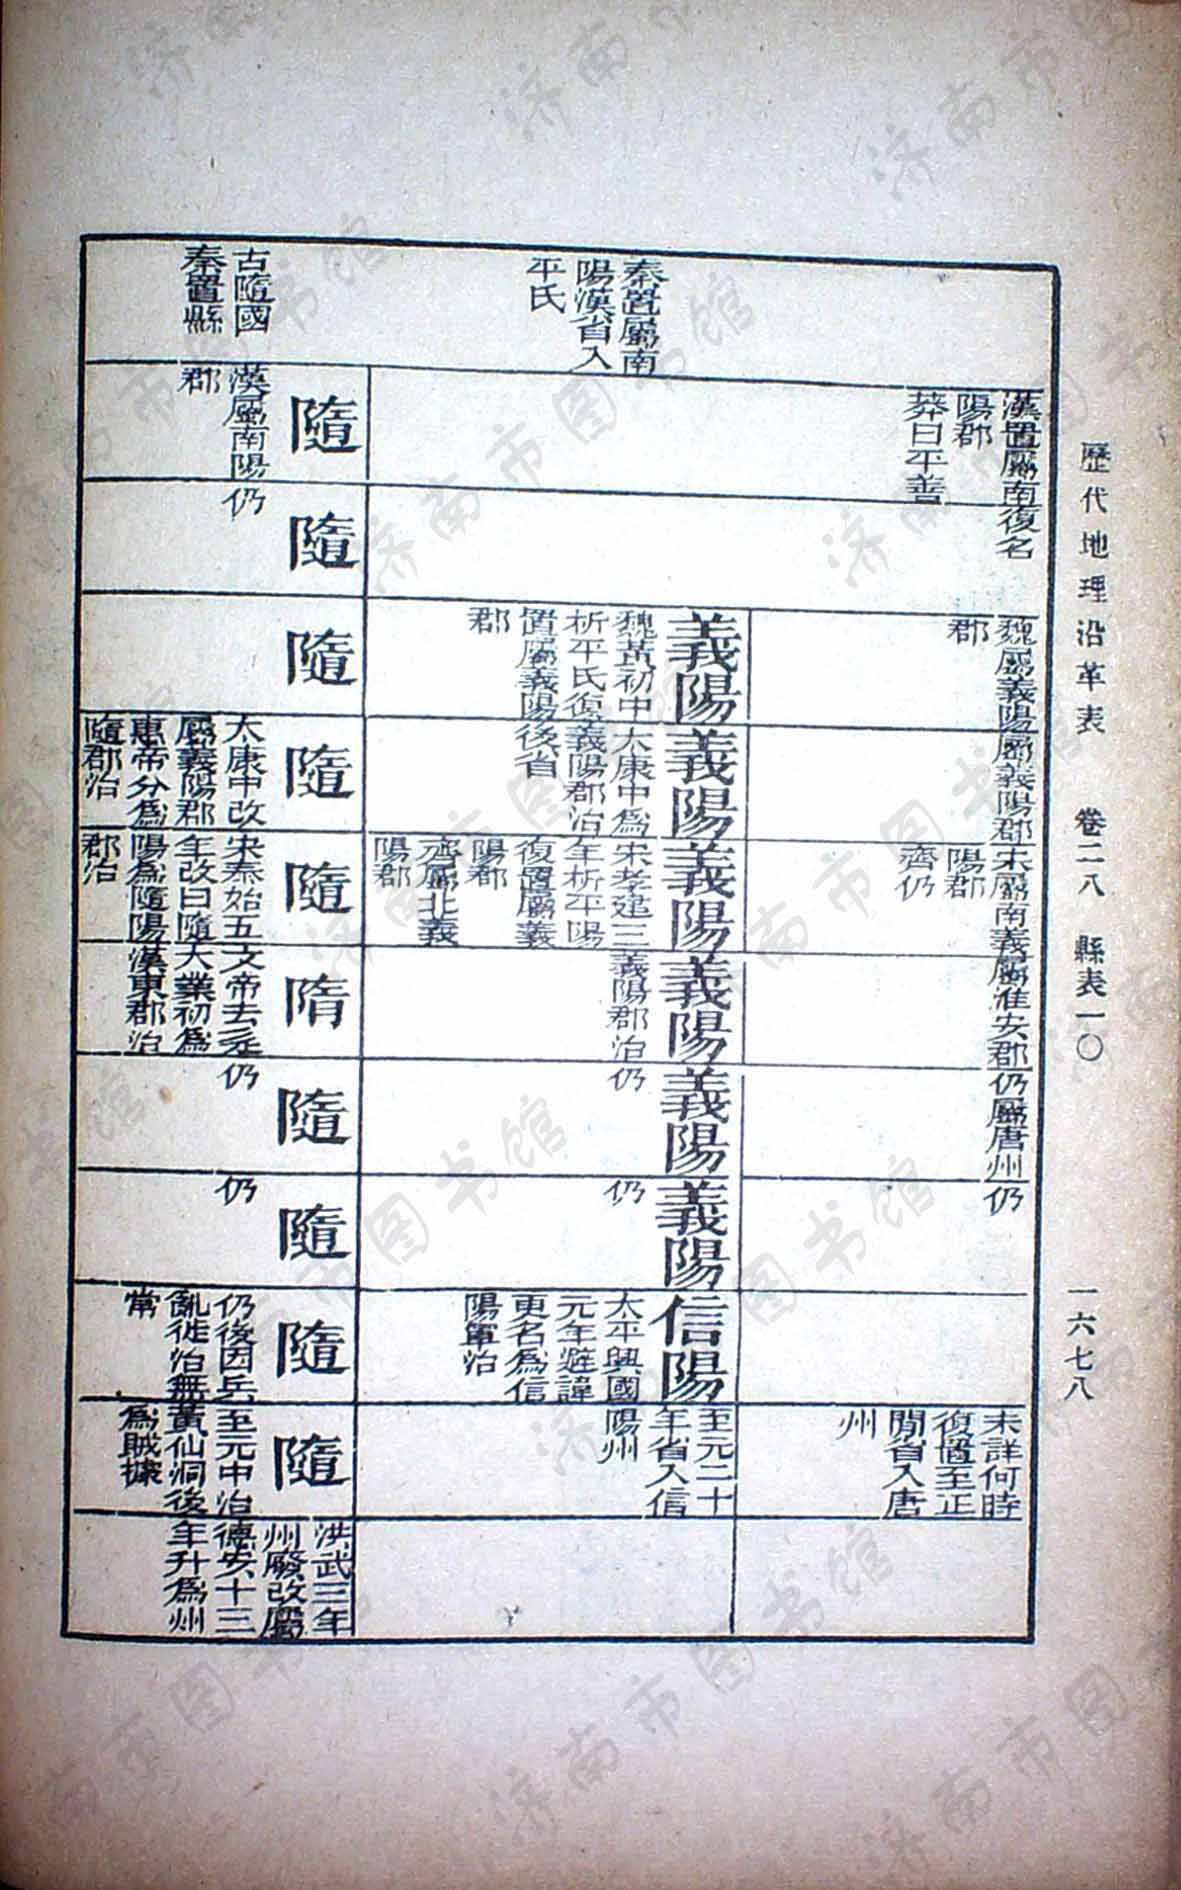 歷代地理沿革表　卷二八　縣表一〇　一六七八
漢置屬南
陽郡
莽曰平善
復名
魏屬義陽
郡
屬義陽郡
宋屬南義
陽郡
齊仍
屬淮安郡
仍屬唐州
仍
未詳何時
復置至正
閒省入唐
州
秦置屬南
陽漢省入
平氏
義陽
魏黃初中
析平氏復
置屬義陽
郡
義陽
太康中爲
義陽郡治
後省
義陽
宋孝建三
年析平陽
復置屬義
陽郡
齊屬北義
陽郡
義陽
義陽郡治
義陽
仍
義陽
仍
信陽
太平興國
元年避諱
更名爲信
陽軍治
至元二十
年省入信
陽州
古隨國
秦置縣
隨
漢屬南陽
郡
隨
仍
隨
隨
太康中改
屬義陽郡
惠帝分爲
隨郡治
隨
宋泰始五
年改曰隨
陽爲隨陽
郡治
隋
文帝去辵
大業初爲
漢東郡治
隨
仍
隨
仍
隨
仍後因兵
亂徙治無
常
隨
至元中治
黃仙洞後
爲賊據
洪武三年
州廢改屬
德安十三
年升爲州
济南市图书馆